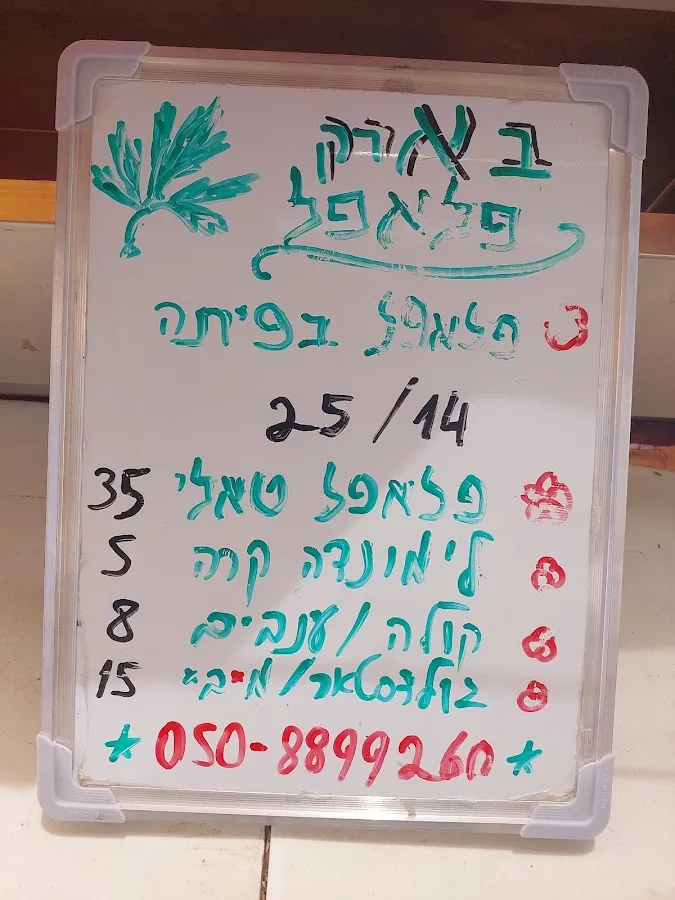 ב יארק
פלאפל
פלאפל בפיתה
25/14
פלאפל טאלי 35
לימונדה קרה 5
קולה/ענבים 8
גולדסטאר/מ"בי" 15
* 050-8899260 *